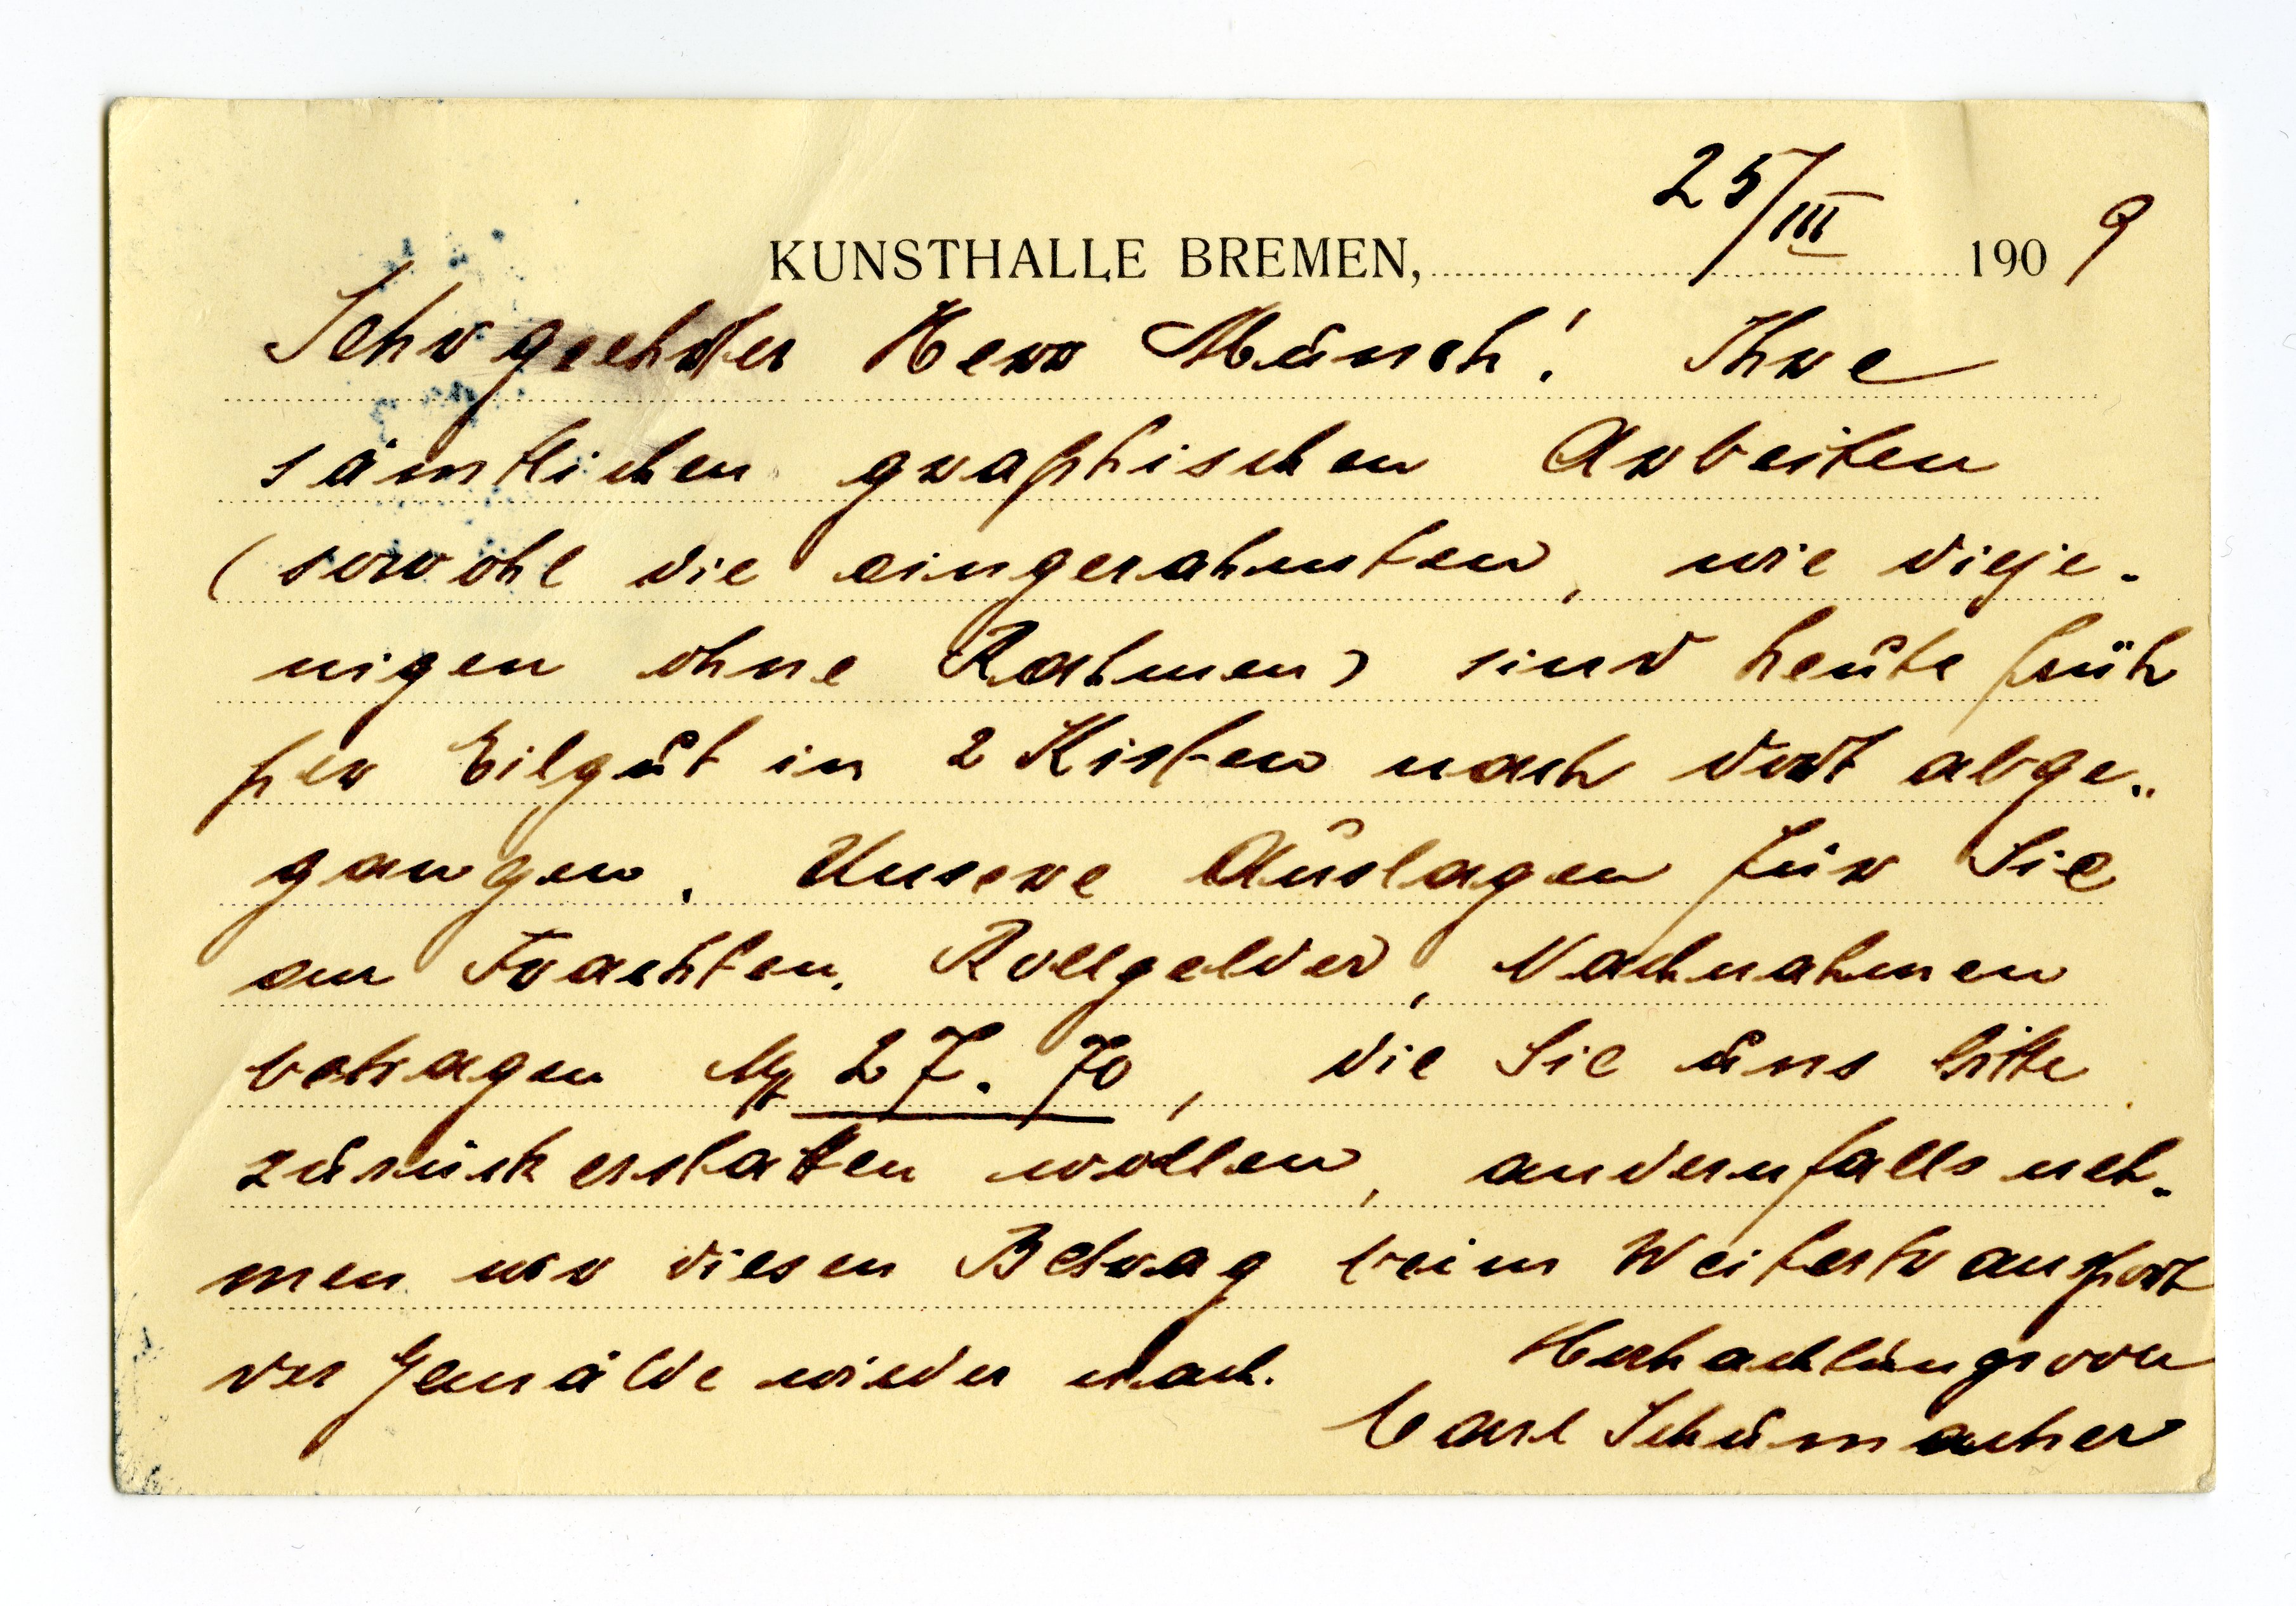 25/III
KUNSTHALLE BREMEN, 1909
Sehr geehrter Herr Munch! Ihre
sämtlichen graphischen Arbeiten
(sowohl die eingerahmten, wie dieje-
nigen ohne Rahmen) sind heute früh
per Eilgut in 2 Kisten nach dort abge-
gangen. Unsere Auslagen für Sie
an Frachten, Rollgelder, Nachnahmen
betragen M 27.70, die Sie uns bitte
zurückerstatten wollen, andernfalls neh-
men wir diesen Betrag beim Weitertransport
der Gemälde wieder nach. Hochachtungsvoll
Carl Schümacher